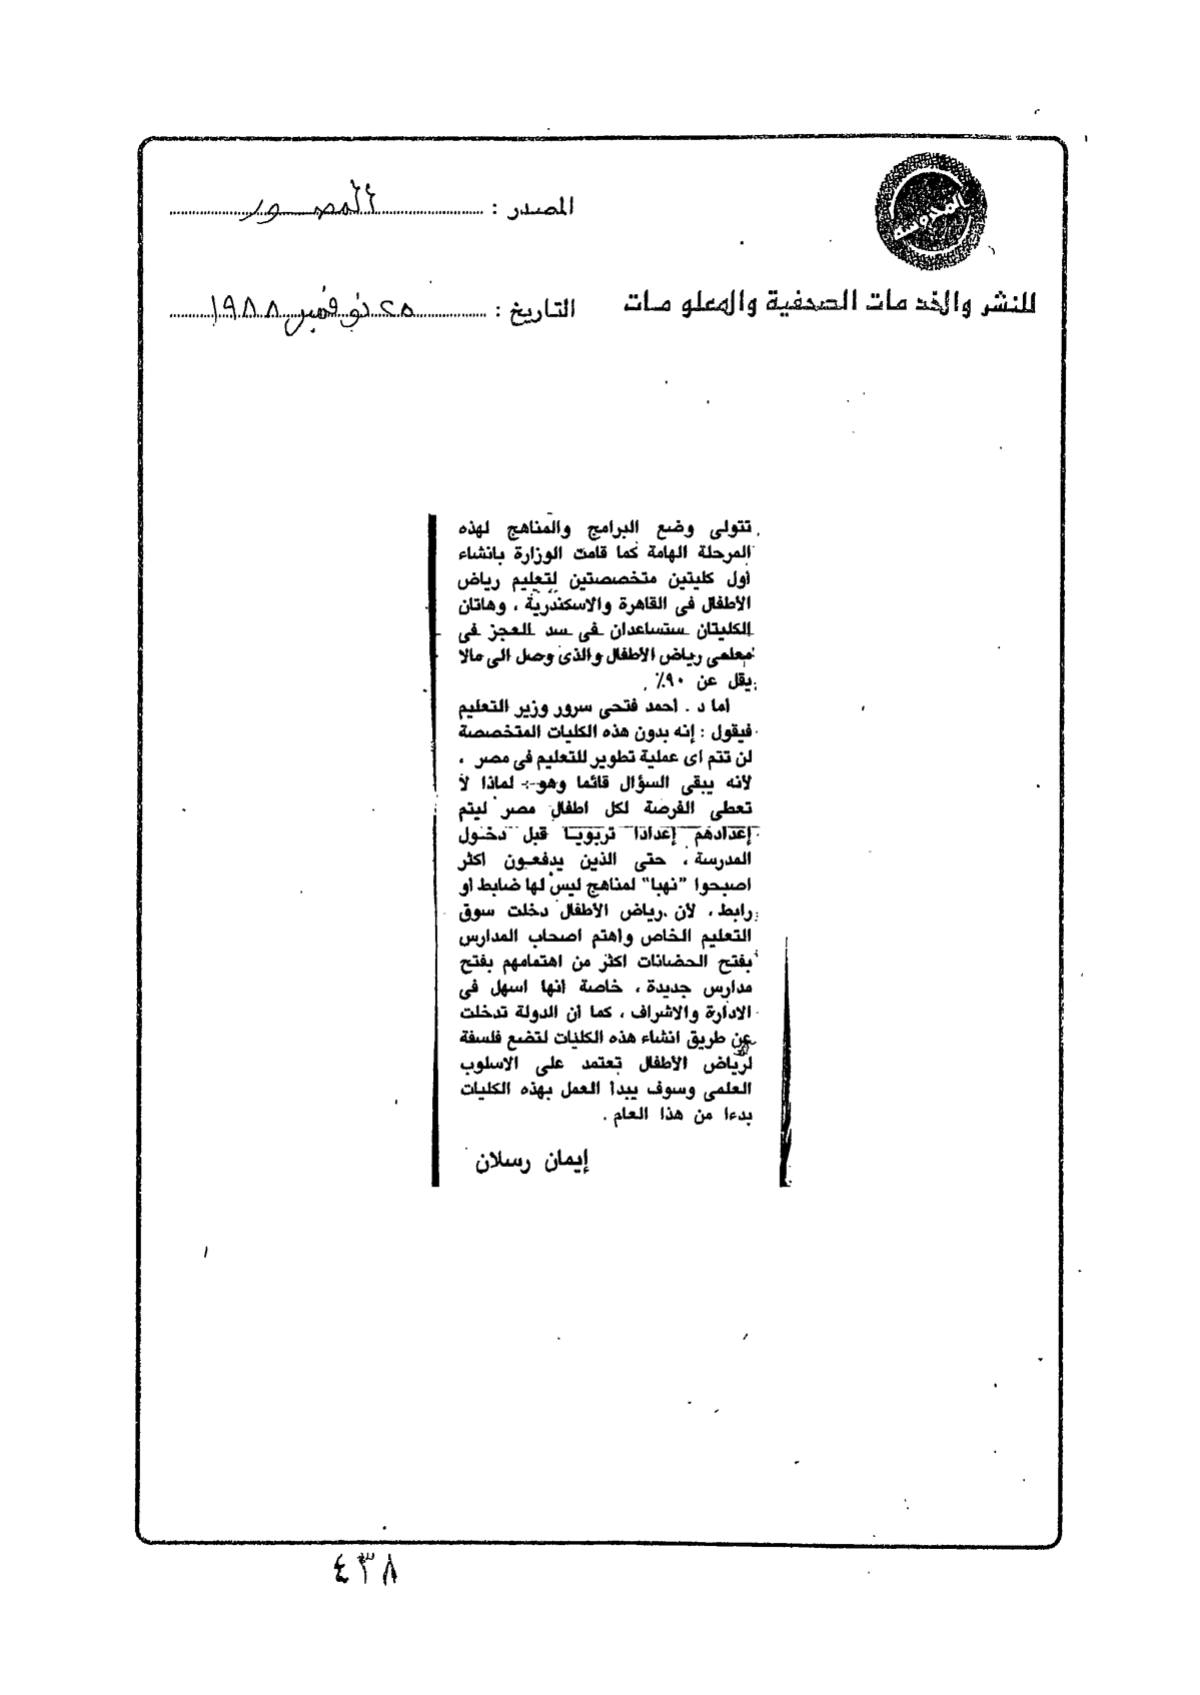 المصدر : المصور
للنشر والخدمات الصحفية والمعلومات
التاريخ : ٢٥ نوفمبر ١٩٨٨
تتولى وضع البرامج والمناهج لهذه
المرحلة الهامة كما قامت الوزارة بانشاء
أول كليتين متخصصتين لتعليم رياض
الأطفال فى القاهرة والاسكندرية ، وهاتان
الكليتان ستساعدان فى سد العجز فى
معلمى رياض الأطفال والذى وصل الى مالا
يقل عن ٩٠٪ .
أما د . أحمد فتحى سرور وزير التعليم
فيقول : إنه بدون هذه الكليات المتخصصة
لن تتم أى عملية تطوير للتعليم فى مصر ،
لأنه يبقى السؤال قائما وهو : لماذا لا
تعطى الفرصة لكل اطفال مصر ليتم
إعدادهم إعدادا تربويا قبل دخول
المدرسة ، حتى الذين يدفعون اكثر
اصبحوا "نهبا" لمناهج ليس لها ضابط أو
رابط ، لأن رياض الأطفال دخلت سوق
التعليم الخاص واهتم اصحاب المدارس
بفتح الحضانات اكثر من اهتمامهم بفتح
مدارس جديدة ، خاصة أنها اسهل فى
الادارة والاشراف ، كما أن الدولة تدخلت
عن طريق انشاء هذه الكليات لتضع فلسفة
لرياض الأطفال تعتمد على الاسلوب
العلمى وسوف يبدأ العمل بهذه الكليات
بدءا من هذا العام .
إيمان رسلان
٤٣٨